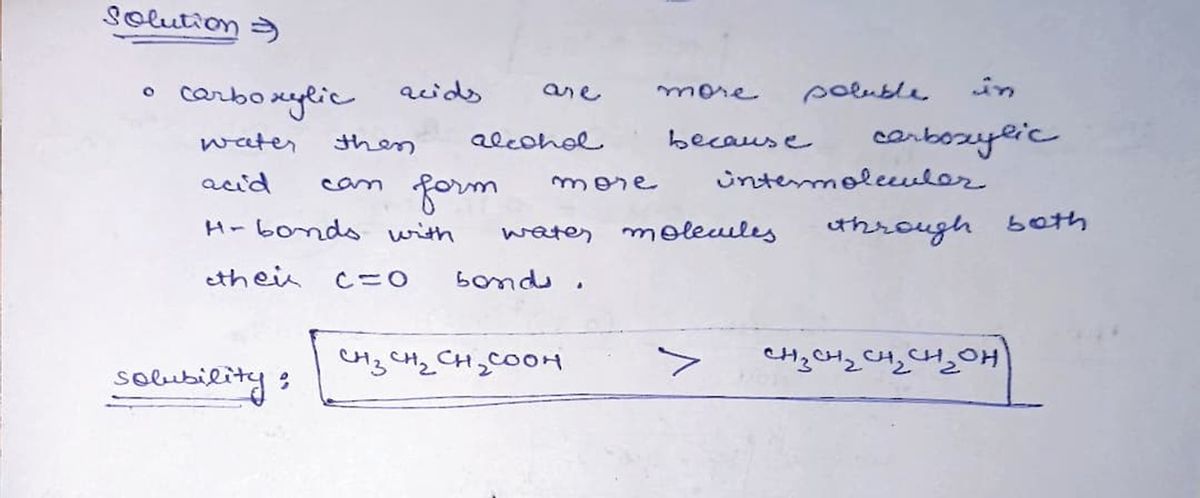 Solution ⇒
∘ carboxylic acids are more soluble in
water then alcohol because carboxylic
acid can form more intermolecular
H-bonds with water molecules through both
their C=O bonds .
solubility : CH₃CH₂CH₂COOH > CH₃CH₂CH₂CH₂OH